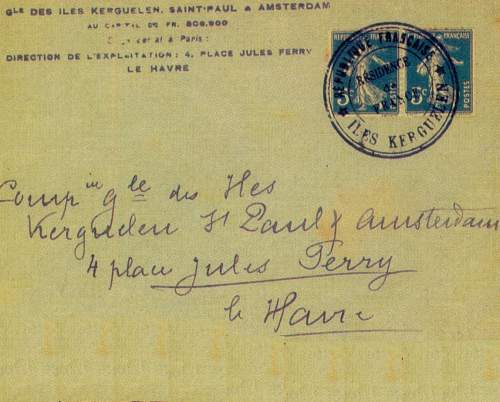 GLE DES ILES KERGUELEN, SAINT-PAUL & AMSTERDAM
AU CAPITAL DE FR. 800.900
à Paris:
DIRECTION DE L'EXPLOITATION: 4, PLACE JULES FERRY
LE HAVRE
★ REPUBLIQUE FRANÇAISE ★
RÉSIDENCE
de
FRANCE
ILES KERGUELEN
5c
5c
POSTES
Comp ie gle des Iles
Kerguelen St Paul & Amsterdam
4 place Jules Ferry
le Havre